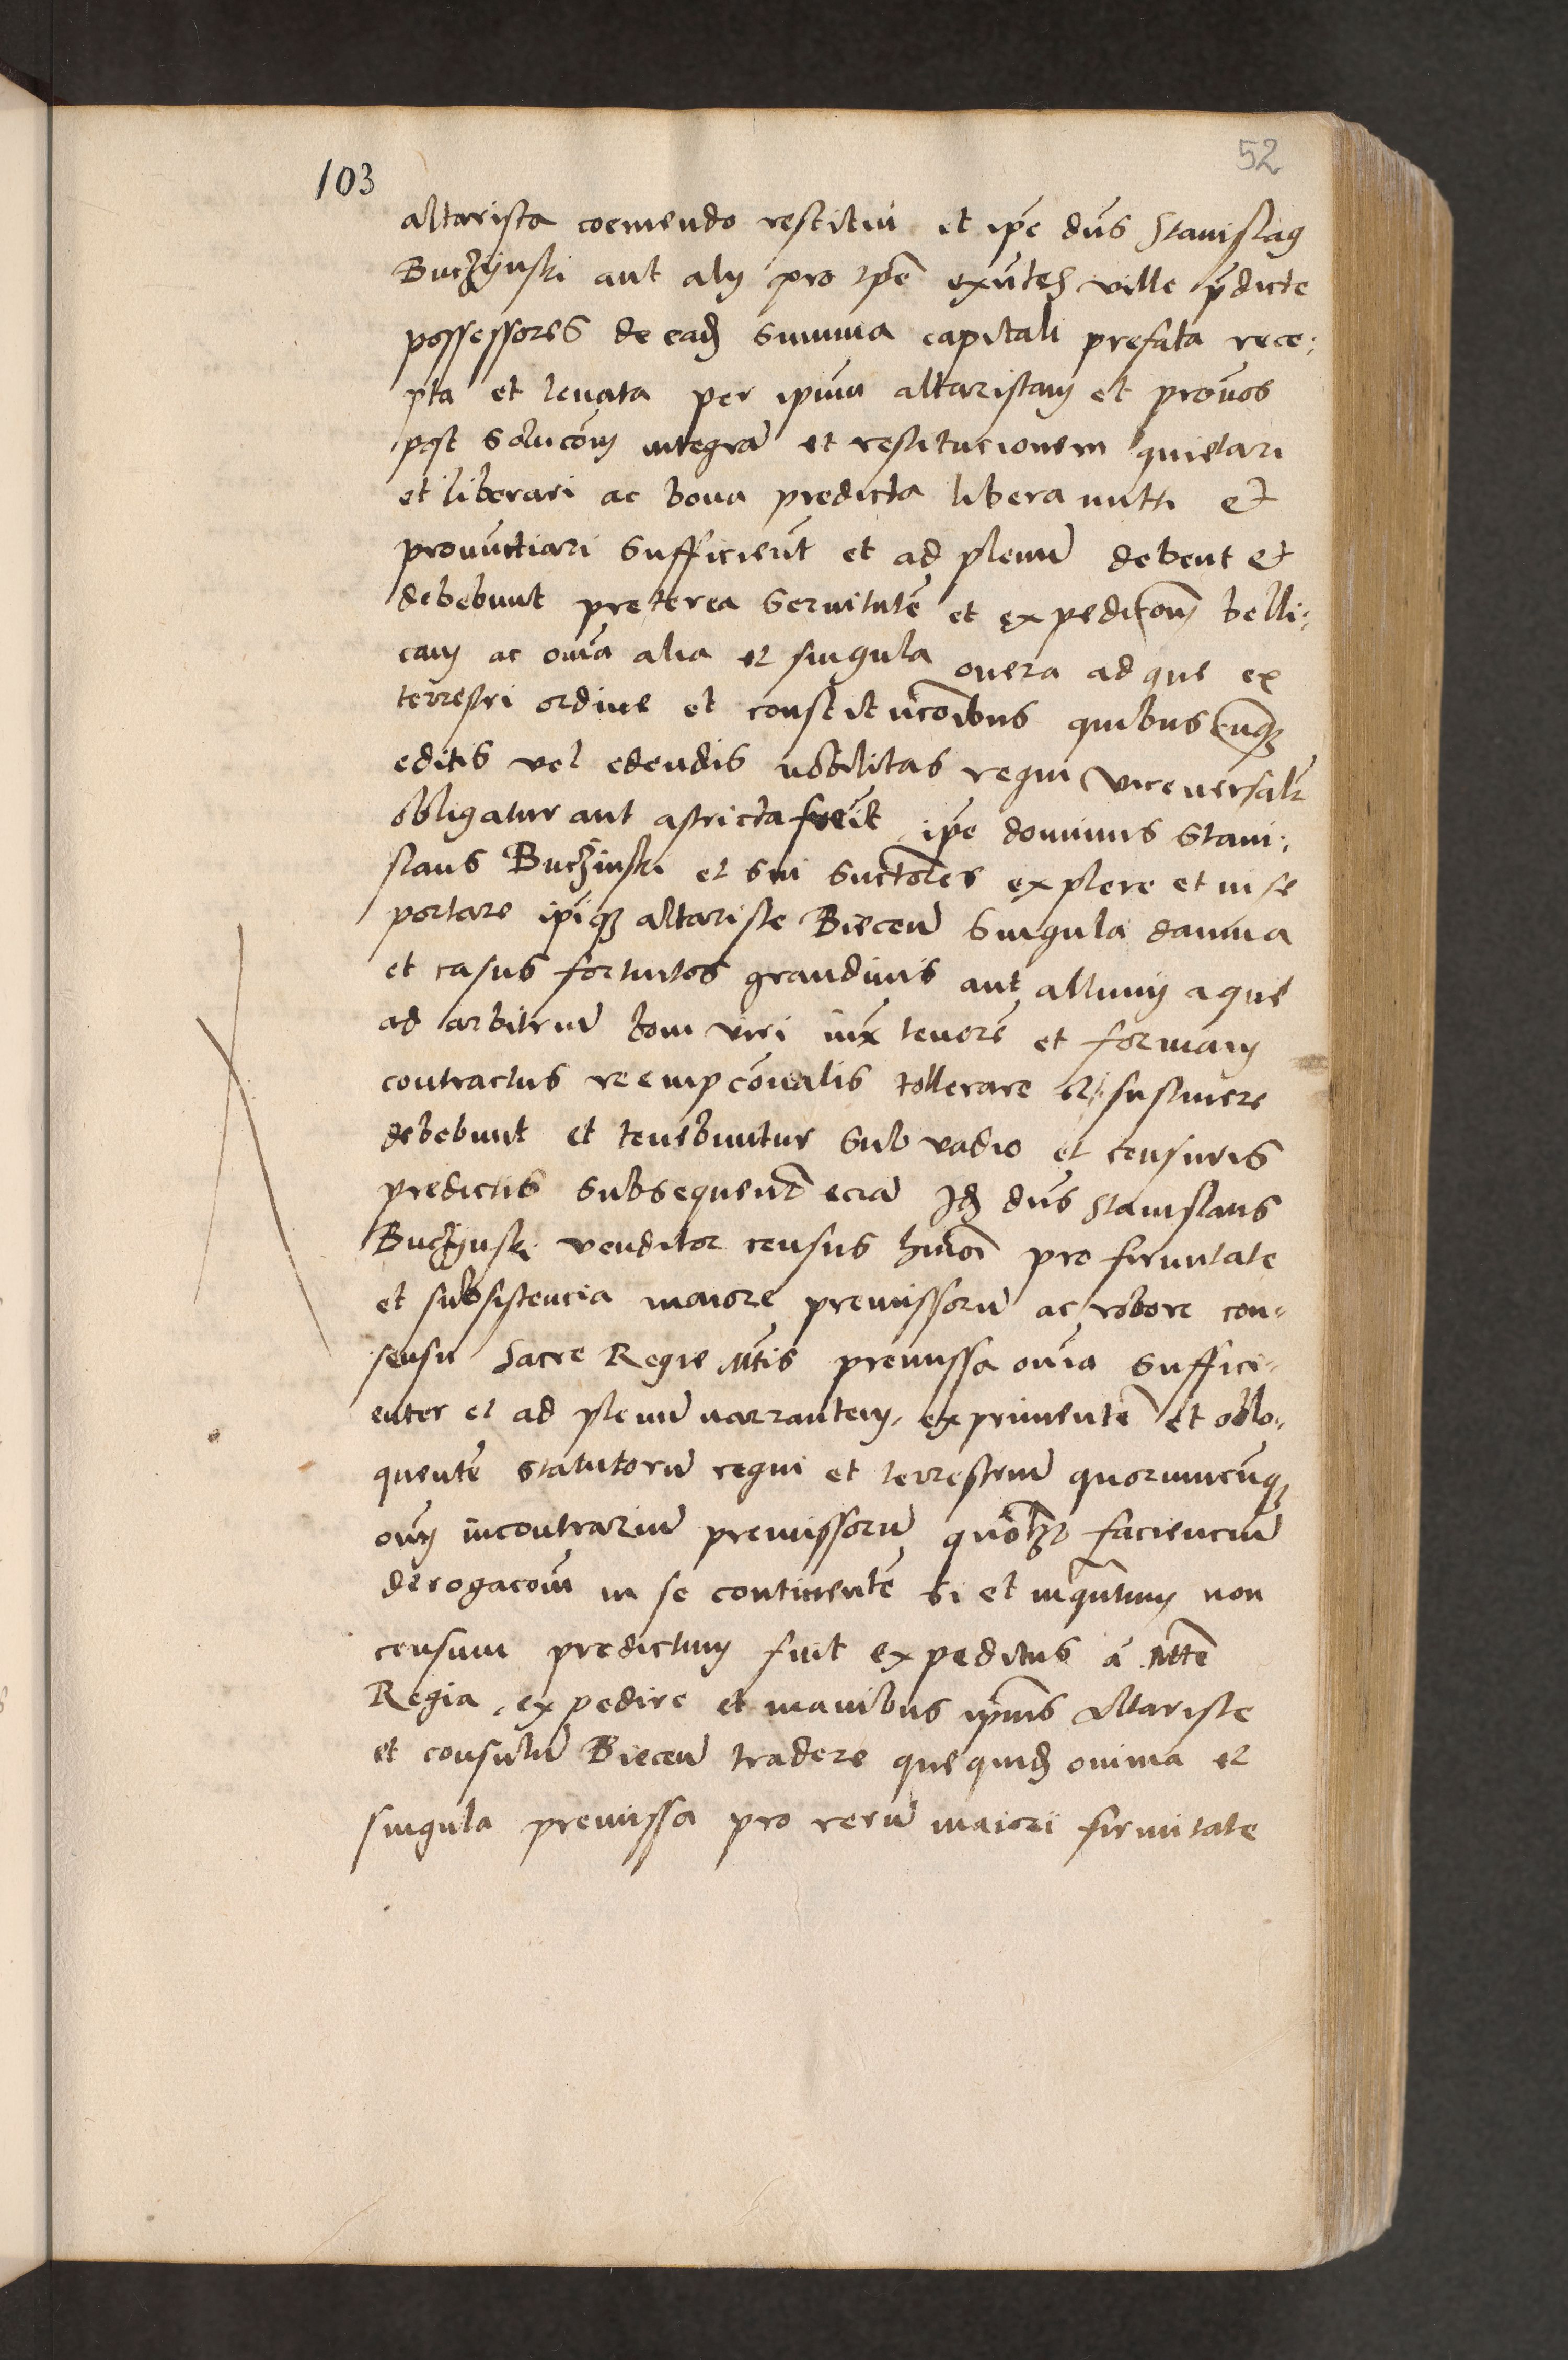 103
52
altarista coemendo restitui et ipe dns Stanislaus
Buczÿnski aut alij pro tpe exntes ville pdicte
possessores de eadem summa capitali prefata rece:
pta et levata per ipsum altaristam et provos
post solucom integra et restitucionem quietari
et liberari ac bona predicta libera mitti et
pronunctiari sufficient et ad plenu debent et
debebunt preterea servitute et expedicom belli:
cam ac omia alia et singula onera ad que ex
terrestri ordine et constitucoibus quibuscunq
editis vel edendis nobilitas regni viceversalr
obligatur aut astricta fuerit ipe dominus Stani:
slaus Buczinski et sui suctores explere et in se
portare ipiq altariste Biecen singula damna
et casus fortuitos grandinis aut alluvij aque
ad arbitriu boni viri iux tenore et formam
contractus reempconalis tollerare et sustinere
debebunt et tenebuntur sub vadio et censuris
predictis subsequent ecia Idem dns Stanislaus
Buczÿnski venditor census hmoi pro firmitate
et subsistencia maiore premissoru ac robore con-
sensu Sacre Regie Mtis premissa omia suffici-
enter et ad plenu narrantem, exprimente et oblo-
quente statutoru regni et terrestriu quorumcunq
om incontrariu premissoru quolzt faciencium
derogacom in se continente si et inquntum non
censum predictum fuit expeditus a Mtte
Regia, expedire et manibus ipius altariste
et consulu Biecen tradere que quidem omnia et
singula premissa pro reru maiori firmitate